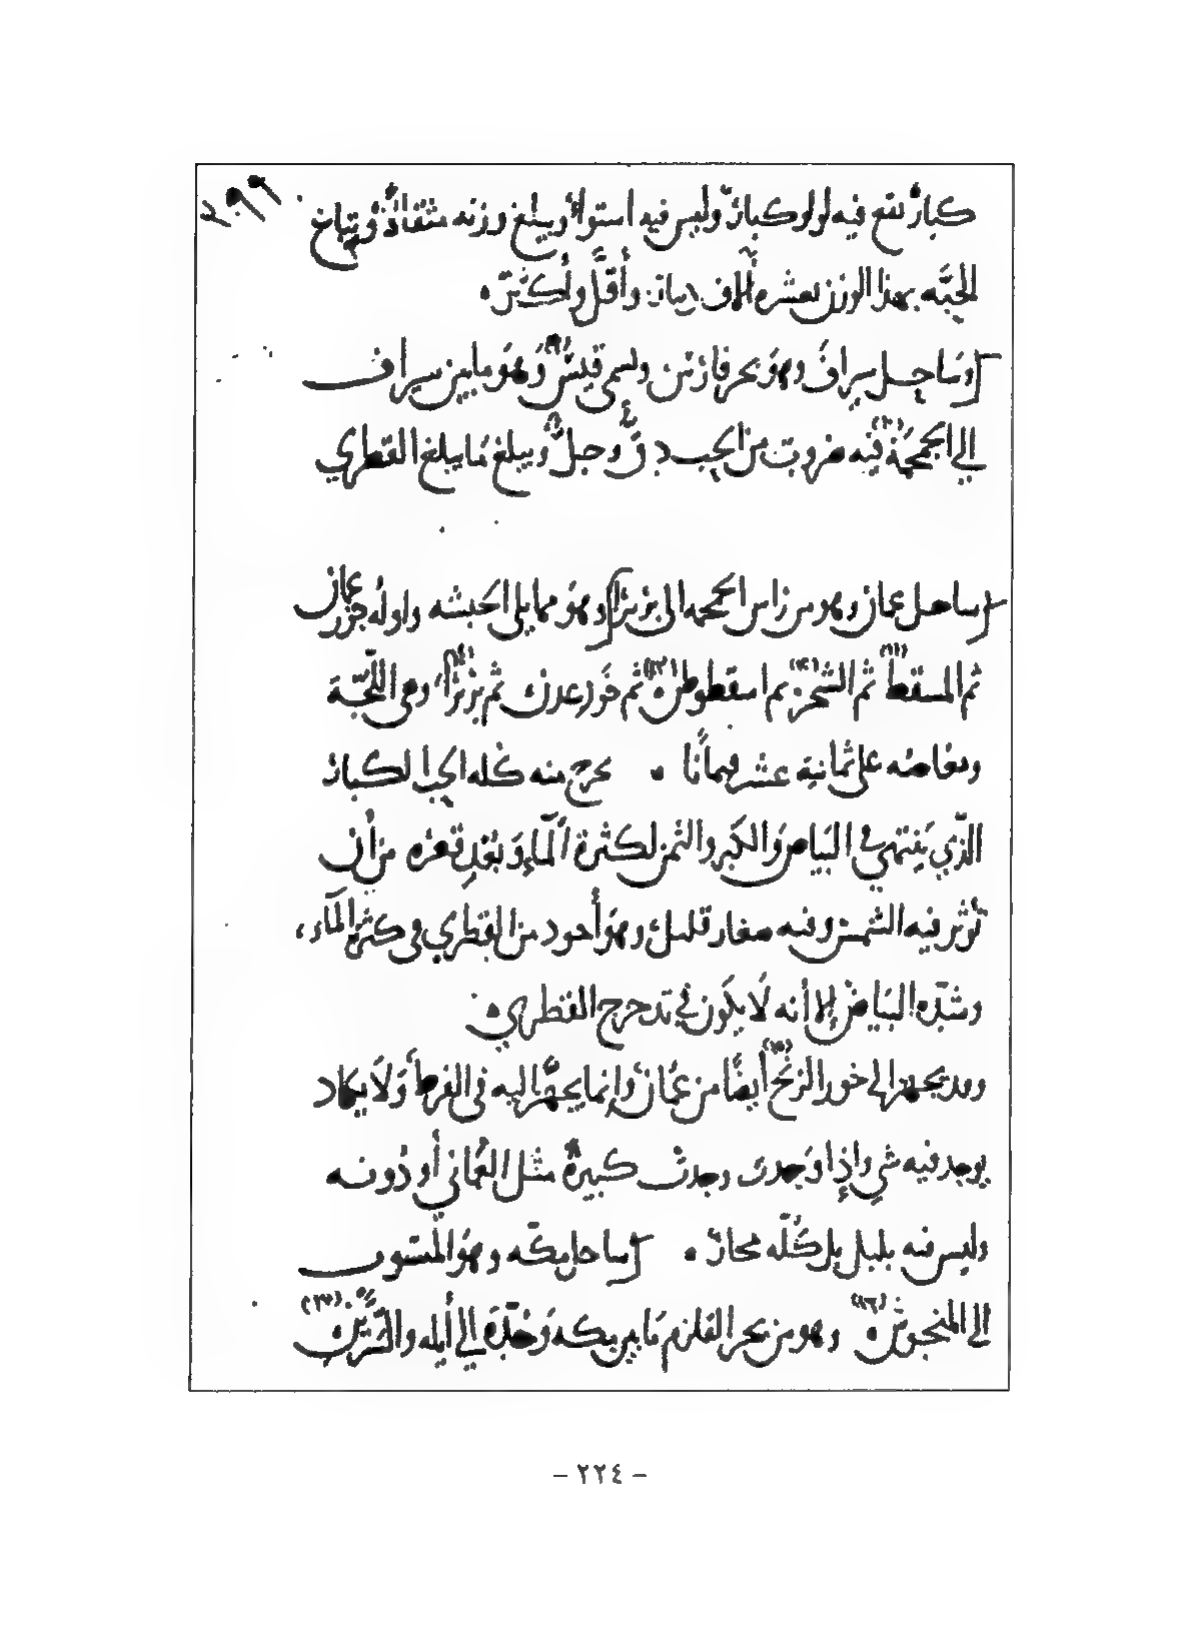 كبارٌ تقع فيه لولو كبارٌ وليس فيه استواءٌ ويبلغ وزنه مثقالٌ وتباع
الحبّه بهذا الوزن بعشره ألاف دينار وأقلّ وأكثر
وسَاحِل سِيراف وهو بحر فارس ويسمى قيسٌ وَهوَ مابين سيراف
إلى الجمجمة (١٠) فيه ضروبٌ من الحب دقّ وجلّ ويبلغ مَا يبلغ القطري
ساحل عمان وهو من راس الجمجمه الى بربرا وهوَ مما يلي الحَبشه واوله خور عمان
ثم المسقط (١١) ثم الشحر (١٢) ثم اسقطوطره (١٣) ثم خَور عدن ثم بَربَرا (١٤) وهى اللّجّة
ومغاصه على ثمانية عشر فيماناً يخرج منه كله الحب الكبار
الذّي يَنتهي في البَياض وَالكَبر والثمن لكثرة الْمآء وَبُعْدِ قعره من أن
تؤثر فيه الشمس وفيه صغار قليل وهوَ أجود من القطري في كثرة المآء
وشدّه البَياض إلا أنه لَا يكون في تدحرج القطري
وقد يجهز إلى خور الزنج (١٥) أيضًا من عُمان وانما يجهّز اليه فى الفرط وَلَا يكاد
يوجد فيه شي وإذا وَجدت وجدتْ كبيرةٌ مثل العُماني أو دُونه
وليس فيه بلبل بل كُلّه محارٌ ساحل مكّه وهوَ المنسوب
الى المنجوش (١٦) وهو من بحر القلزم مَا بين مكه وَجُدّه إلى أيله والسّرّين
- ٢٢٤ -